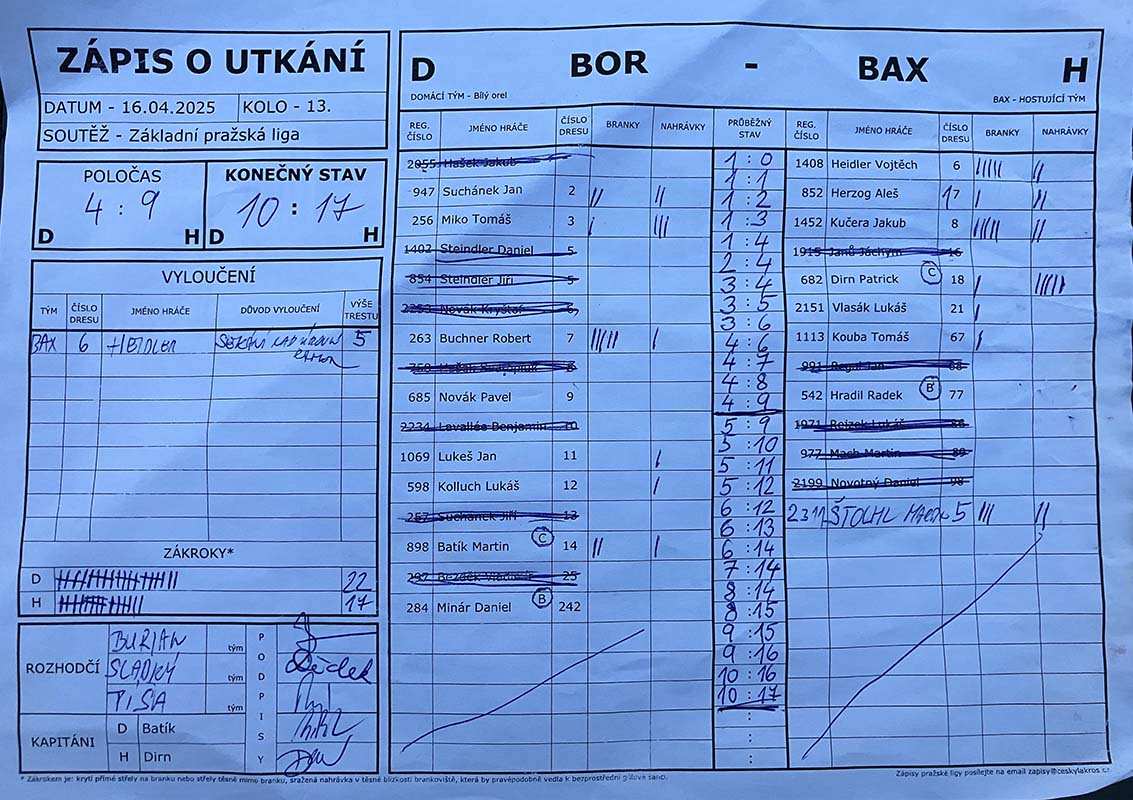 ZÁPIS O UTKÁNÍ
DATUM - 16.04.2025 KOLO - 13.
SOUTĚŽ - Základní pražská liga
POLOČAS KONEČNÝ STAV
4 : 9 10 : 17
D H D H
VYLOUČENÍ
TÝM ČÍSLO DRESU JMÉNO HRÁČE DŮVOD VYLOUČENÍ VÝŠE TRESTU
BAX 6 HEIDLER 5
ZÁKROKY*
D 22
H 17
ROZHODČÍ
BURIAN tým
SLÁDKÝ tým
TISA tým
PODPISY
KAPITÁNI
D Batík
H Dirn
D BOR - BAX H
DOMÁCÍ TÝM - Bílý orel BAX - HOSTUJÍCÍ TÝM
REG. ČÍSLO JMÉNO HRÁČE ČÍSLO DRESU BRANKY NAHRÁVKY PRŮBĚŽNÝ STAV REG. ČÍSLO JMÉNO HRÁČE ČÍSLO DRESU BRANKY NAHRÁVKY
2055 Hašek Jakub
947 Suchánek Jan 2 || ||
256 Miko Tomáš 3 | |||
1402 Steindler Daniel 5
854 Steindler Jiří 5
2253 Novák Kryštof 6
263 Buchner Robert 7 ||||| |
685 Novák Pavel 9
2234 Lavallée Benjamin 10
1069 Lukeš Jan 11 |
598 Kolluch Lukáš 12 |
257 Suchánek Jiří 13
898 Batík Martin C 14 || |
297 25
284 Minár Daniel B 242
1 : 0
1 : 1
1 : 2
1 : 3
1 : 4
2 : 4
3 : 4
3 : 5
3 : 6
4 : 6
4 : 7
4 : 8
4 : 9
5 : 9
5 : 10
5 : 11
5 : 12
6 : 12
6 : 13
6 : 14
7 : 14
8 : 14
8 : 15
9 : 15
9 : 16
10 : 16
10 : 17
:
:
:
1408 Heidler Vojtěch 6 ||||| ||
852 Herzog Aleš 17 | ||
1452 Kučera Jakub 8 ||||| ||
1915 Janů Jáchym 16
682 Dirn Patrick C 18 | |||||
2151 Vlasák Lukáš 21 |
1113 Kouba Tomáš 67 |
991 Jan 68
542 Hradil Radek B 77
1971 Rejzek Lukáš 86
977 Mach Martin 89
2199 Novotný Daniel 98
2311 ŠTOLHL 5 ||| ||
* Zákrokem je: krytí přímé střely na branku nebo střely těsně mimo branku, sražená nahrávka v těsné blízkosti brankoviště, která by pravěpodobně vedla k bezprostřední gólové šanci.
Zápisy pražské ligy posílejte na email zapisy@ceskylakros.cz.